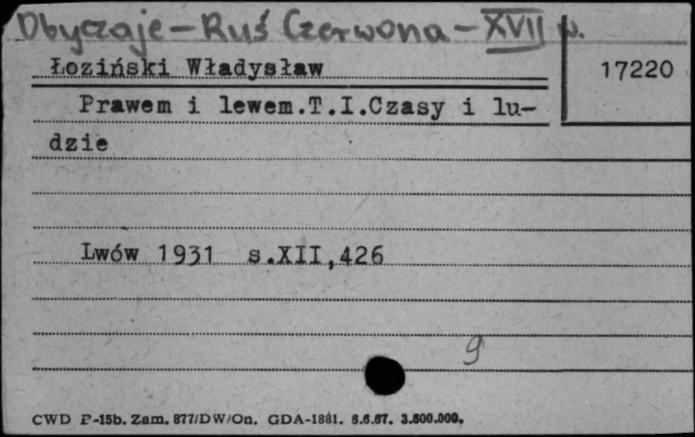 Obyczaje - Ruś Czerwona - XVII w.
Łoziński Władysław
17220
Prawem i lewem.T.I.Czasy i lu-
dzie
Lwów 1931 s.XII,426
9
CWD P-15b. Zam. 877/DW/On. GDA-1881. 5.6.67. 3.500.000.